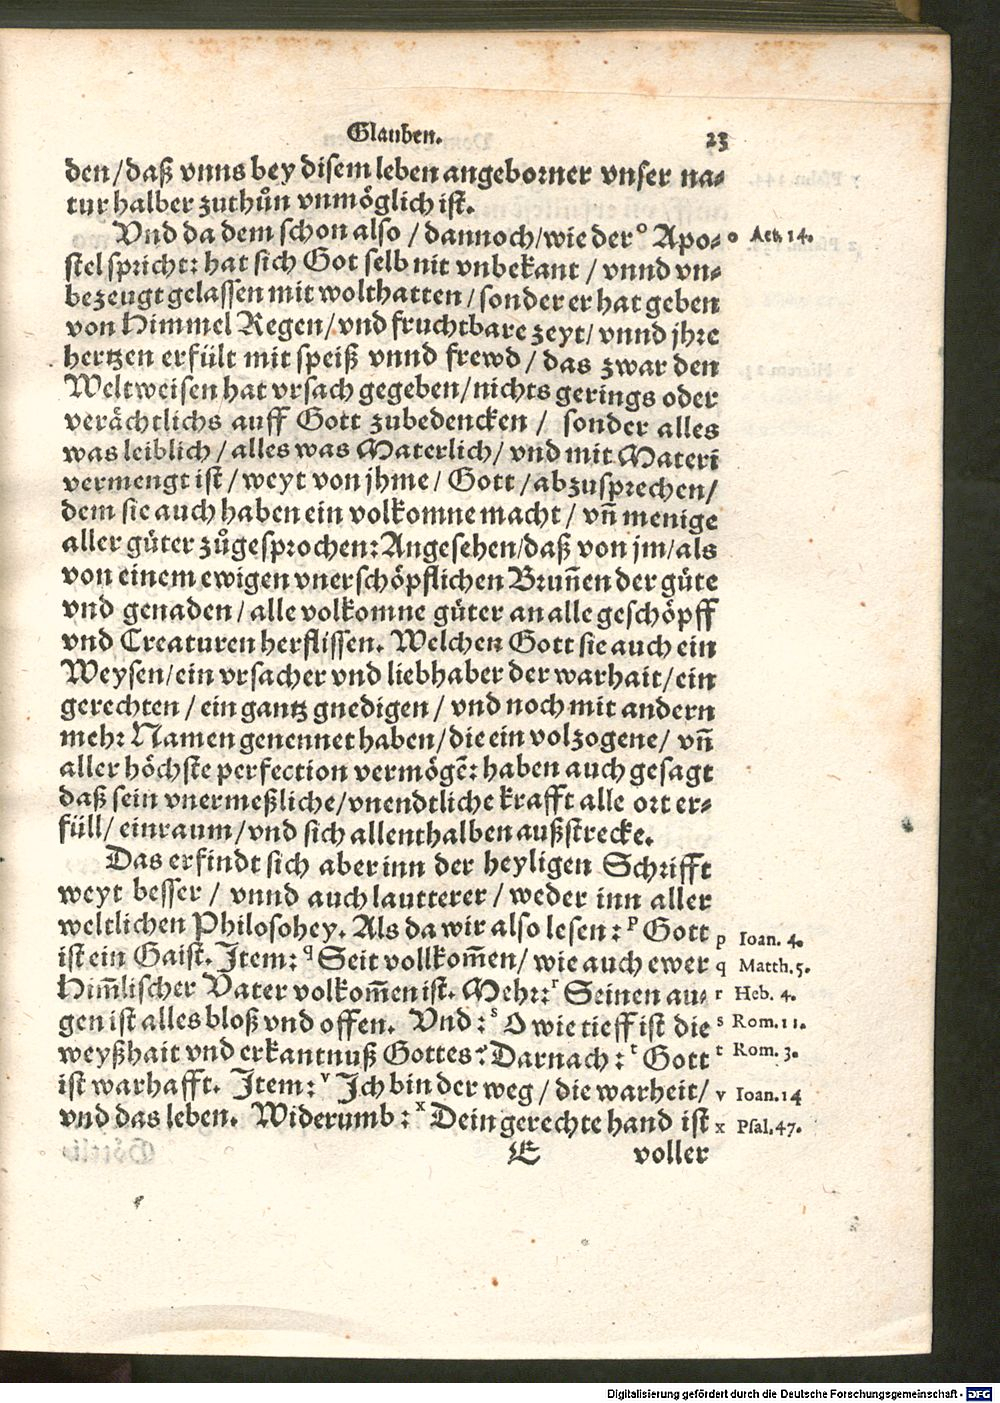 Glauben. 23
den/daß vnns bey disem leben angeborner vnser na-
tur halber zuthůn vnmöglich ist.
Vnd da dem schon also / dannoch/wie der o Apo- o Act. 14.
stel spricht: hat sich Got selb nit vnbekant / vnnd vn-
bezeugt gelassen mit wolthatten / sonder er hat geben
von Himmel Regen/vnd fruchtbare zeyt/ vnnd jhre
hertzen erfült mit speiß vnnd frewd / das zwar den
Weltweisen hat vrsach gegeben/nichts gerings oder
verächtlichs auff Gott zubedencken / sonder alles
was leiblich / alles was Materlich/ vnd mit Materi
vermengt ist / weyt von jhme / Gott / abzusprechen/
dem sie auch haben ein volkomne macht / vñ menige
aller güter zůgesprochen: Angesehen/daß von jm/als
von einem ewigen vnerschöpflichen Bruñen der güte
vnd genaden / alle volkomne güter an alle geschöpff
vnd Creaturen herflissen. Welchen Gott sie auch ein
Weysen/ein vrsacher vnd liebhaber der warhait/ein
gerechten / ein gantz gnedigen / vnd noch mit andern
mehr Namen genennet haben/die ein volzogene/ vñ
aller höchste perfection vermögẽ: haben auch gesagt
daß sein vnermeßliche/vnendtliche krafft alle ort er-
füll/ einraum/vnd sich allenthalben außstrecke.
Das erfindt sich aber inn der heyligen Schrifft
weyt besser / vnnd auch lautterer / weder inn aller
weltlichen Philosohey. Als da wir also lesen: p Gott p Ioan. 4.
ist ein Gaist. Item: q Seit vollkom̃en/ wie auch ewer q Matth. 5.
Him̃lischer Vater volkom̃en ist. Mehr: r Seinen au- r Heb. 4.
gen ist alles bloß vnd offen. Vnd: s O wie tieff ist die s Rom. 11.
weyßhait vnd erkantnuß Gottes? Darnach: t Gott t Rom. 3.
ist warhafft. Item: v Ich bin der weg / die warheit/ v Ioan. 14
vnd das leben. Widerumb: x Dein gerechte hand ist x Psal. 47.
E voller
Digitalisierung gefördert durch die Deutsche Forschungsgemeinschaft - DFG